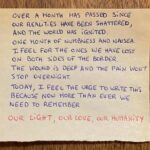 OVER A MONTH HAS PASSED SINCE
OUR REALITIES HAVE BEEN SHATTERED,
AND THE WORLD HAS IGNITED.
ONE MONTH OF NUMBNESS AND NAUSEA.
I FEEL FOR THE ONES WE HAVE LOST
ON BOTH SIDES OF THE BORDER.
THE WOUND IS DEEP AND THE PAIN WON'T
STOP OVERNIGHT.
TODAY, I FEEL THE URGE TO WRITE THIS
BECAUSE NOW MORE THAN EVER WE
NEED TO REMEMBER
OUR LIGHT, OUR LOVE, OUR HUMANITY